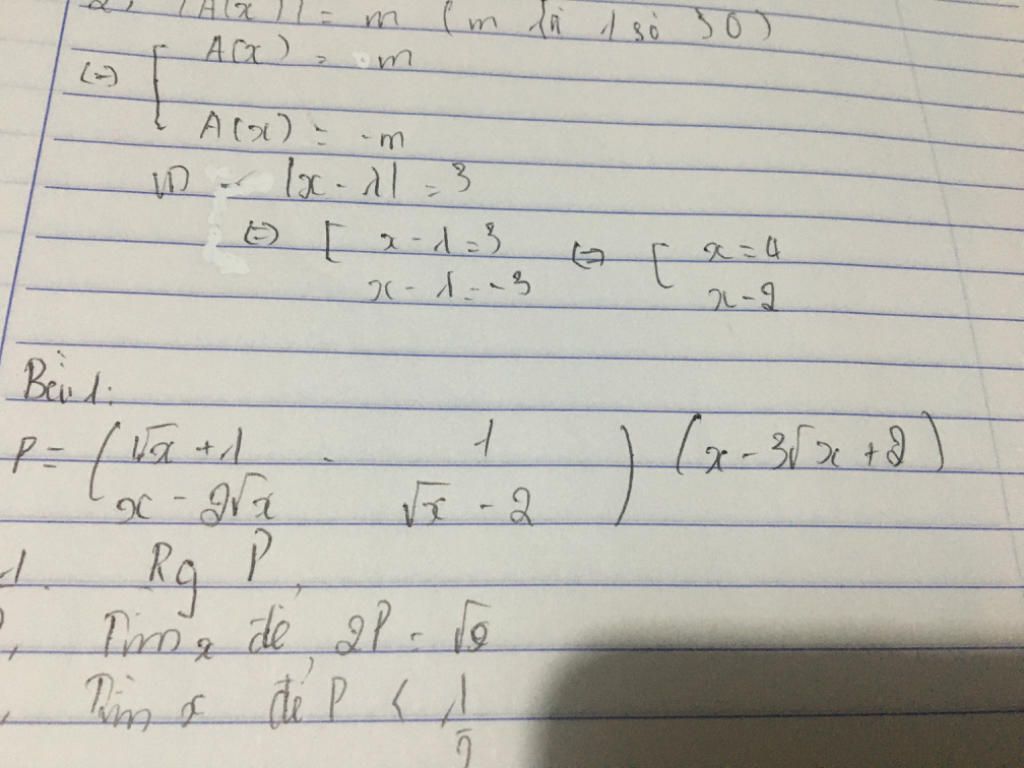 2, |A(x)| = m (m là 1 số >0)
(=) [ A(x) = m
A(x) = -m
VD |x - 1| = 3
(=) [ x - 1 = 3 (=) [ x = 4
x - 1 = -3 x - 2
Bài 1:
P = ( √x + 1 / x - 2√x - 1 / √x - 2 ) (x - 3√x + 2)
1. Rg P
, Tìm x để 2P = √2
, Tìm x để P < 1/2